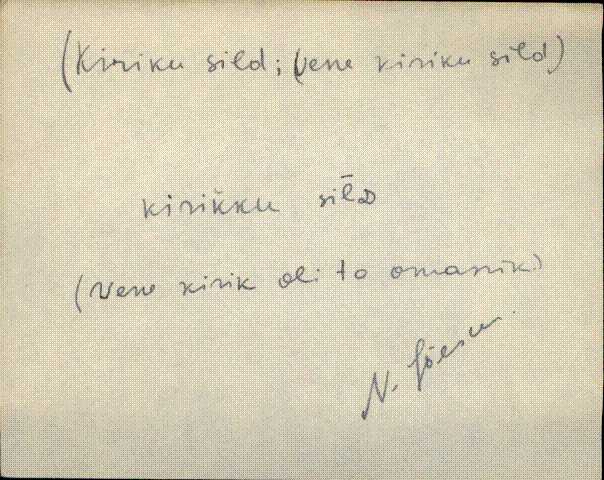 (Kiriku sild; Vene kiriku sild)
kirikku silD
(vene kirik oli ta omanik)
N.